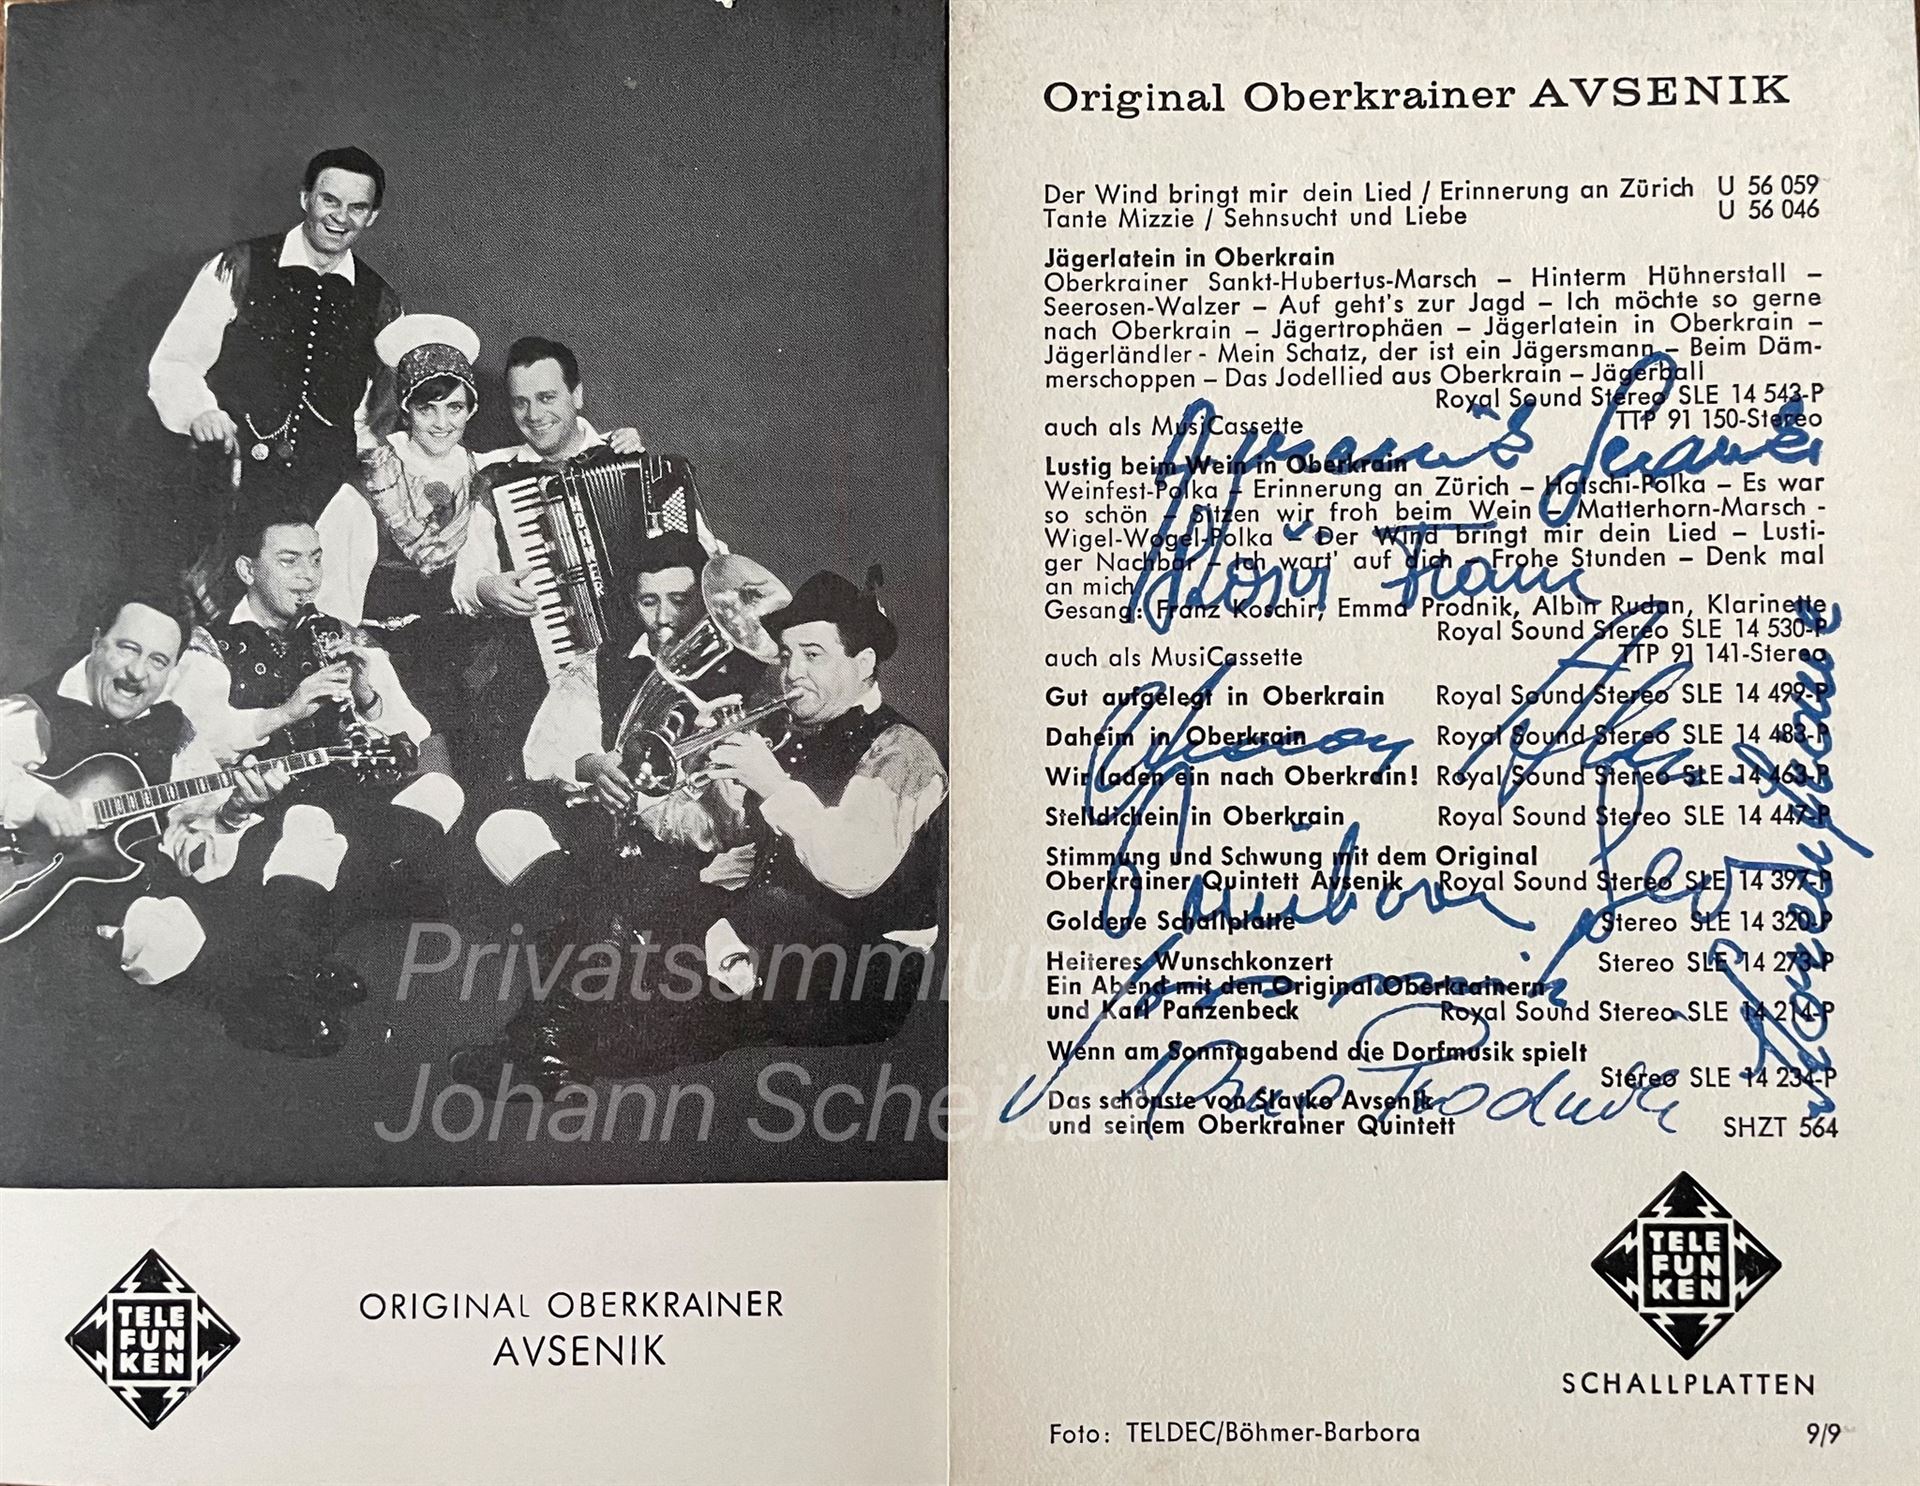 HOHNER
Privatsammlung
Johann Scheib
TELE
FUN
KEN
ORIGINAL OBERKRAINER
AVSENIK
Original Oberkrainer AVSENIK
Der Wind bringt mir dein Lied / Erinnerung an Zürich U 56 059
Tante Mizzie / Sehnsucht und Liebe U 56 046
Jägerlatein in Oberkrain
Oberkrainer Sankt-Hubertus-Marsch – Hinterm Hühnerstall –
Seerosen-Walzer – Auf geht's zur Jagd – Ich möchte so gerne
nach Oberkrain – Jägertrophäen – Jägerlatein in Oberkrain –
Jägerländler - Mein Schatz, der ist ein Jägersmann – Beim Däm-
merschoppen – Das Jodellied aus Oberkrain – Jägerball
Royal Sound Stereo SLE 14 543-P
auch als MusiCassette TTP 91 150-Stereo
Avsenik Slavko
Lustig beim Wein in Oberkrain
Weinfest-Polka – Erinnerung an Zürich – Hatschi-Polka – Es war
so schön – Sitzen wir froh beim Wein – Matterhorn-Marsch -
Wigel-Wogel-Polka – Der Wind bringt mir dein Lied – Lusti-
ger Nachbar – Ich wart' auf dich – Frohe Stunden – Denk mal
an mich
Košir Franc
Gesang: Franz Koschir, Emma Prodnik, Albin Rudan, Klarinette
Royal Sound Stereo SLE 14 530-P
auch als MusiCassette TTP 91 141-Stereo
Gut aufgelegt in Oberkrain Royal Sound Stereo SLE 14 499-P
Daheim in Oberkrain Royal Sound Stereo SLE 14 483-P
Wir laden ein nach Oberkrain! Royal Sound Stereo SLE 14 463-P
Stelldichein in Oberkrain Royal Sound Stereo SLE 14 447-P
Stimmung und Schwung mit dem Original
Oberkrainer Quintett Avsenik Royal Sound Stereo SLE 14 397-P
Lev
Goldene Schallplatte Stereo SLE 14 320-P
Heiteres Wunschkonzert Stereo SLE 14 273-P
Ein Abend mit den Original Oberkrainern
und Karl Panzenbeck Royal Sound Stereo SLE 14 214-P
Wenn am Sonntagabend die Dorfmusik spielt
Stereo SLE 14 234-P
Prodnik
Das schönste von Slavko Avsenik
und seinem Oberkrainer Quintett SHZT 564
TELE
FUN
KEN
SCHALLPLATTEN
Foto: TELDEC/Böhmer-Barbora 9/9